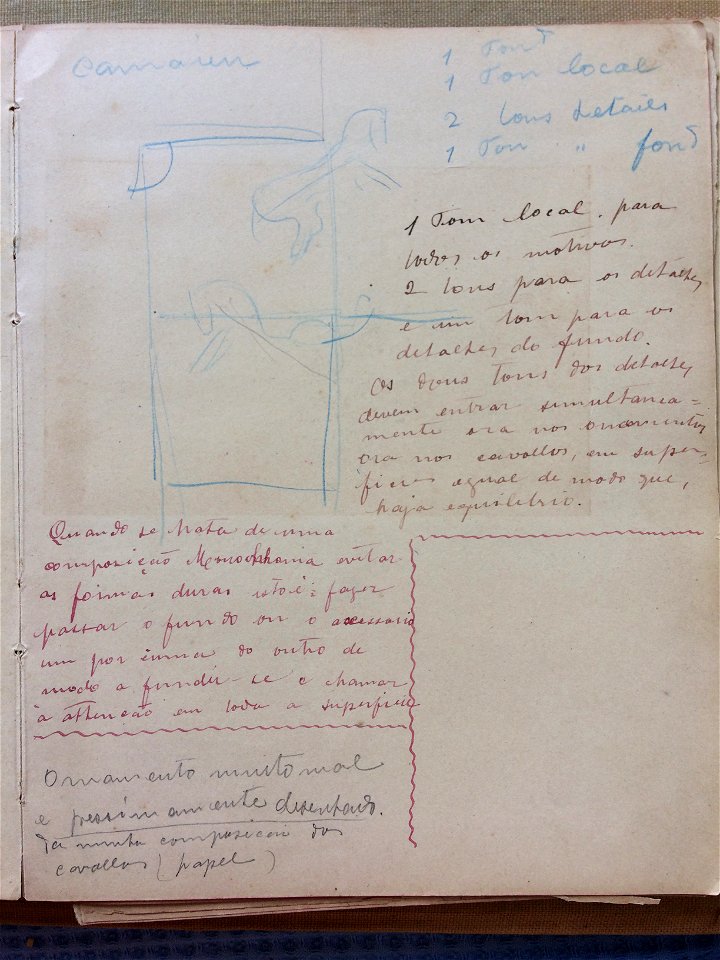 Camaieu
1 Ton
1 Ton local
2 tons details
1 Ton " fond
1 Tom local. para
todos os motivos.
2 tons para os detalhes
e um tom para os
detalhes do fundo.
Os dous tons dos detalhes
devem entrar simultanea=
mente ora nos ornamentos
ora nos cavallos, em super-
ficies egual de modo que,
haja equilibrio.
Quando se trata de uma
composição evitar
as formas duras isto é: fazer
passar o fundo ou o accessorio
um por cima do outro de
modo a fundir-se e chamar
à attenção em toda a superficie
Ornamento muito mal
e pessimamente desenhado.
Da minha composição dos
cavallos (papel)